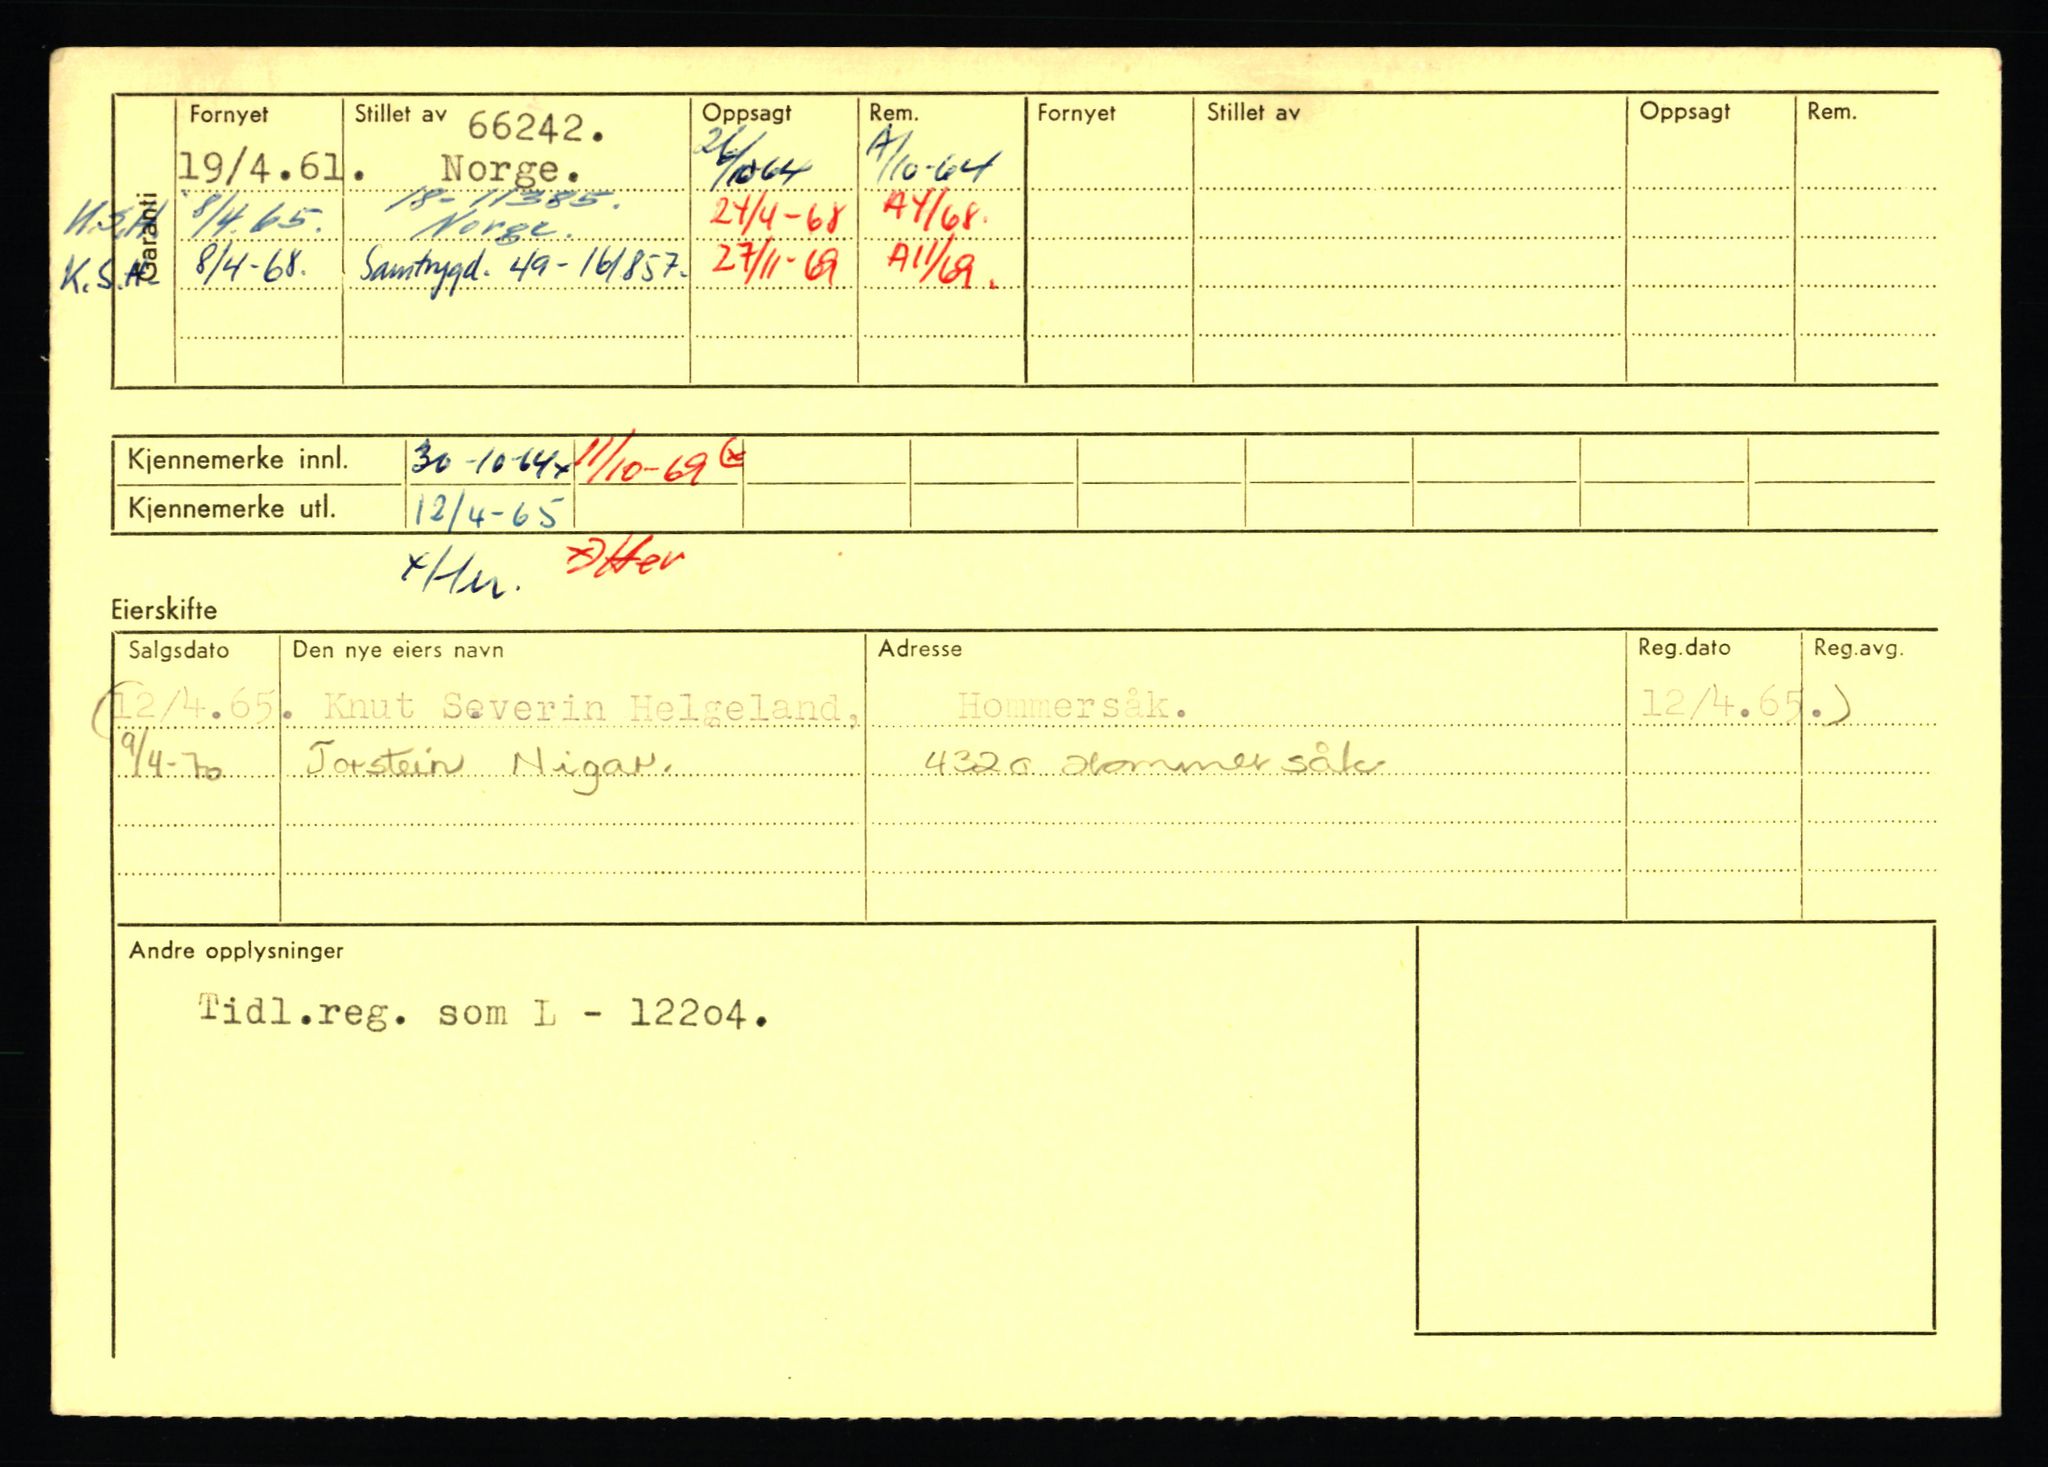 Garanti
Fornyet Stillet av Oppsagt Rem. Fornyet Stillet av Oppsagt Rem.
66242.
19/4.61. Norge. 26/10 64 A/10-64
K.S.H. 8/4.65. 18-11385. Norge. 24/4-68 A4/68.
K.S.H. 8/4-68. Samtrygd. 49-161857. 27/11-69 A11/69.
Kjennemerke innl. 30-10-64x 11/10-69 (x
Kjennemerke utl. 12/4-65
x/Her. x) Her
Eierskifte
Salgsdato Den nye eiers navn Adresse Reg.dato Reg.avg.
(12/4.65. Knut Severin Helgeland, Hommersåk. 12/4.65.)
9/4-70 Torstein Nigar. 4320 Hommersåk
Andre opplysninger
Tidl.reg. som L - 122o4.